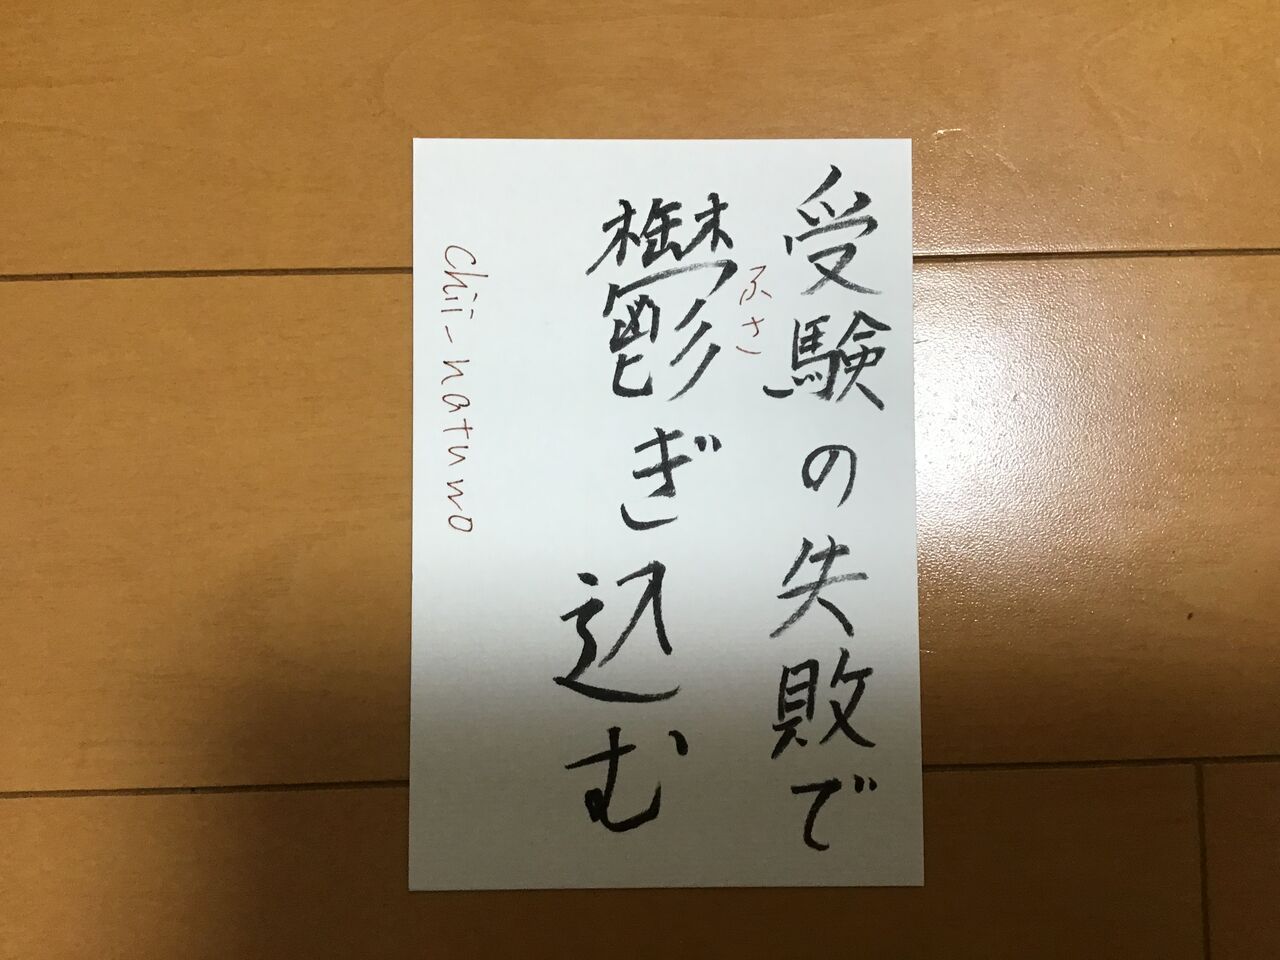 受験の失敗で
ふさ
鬱ぎ込む
chii_natumo